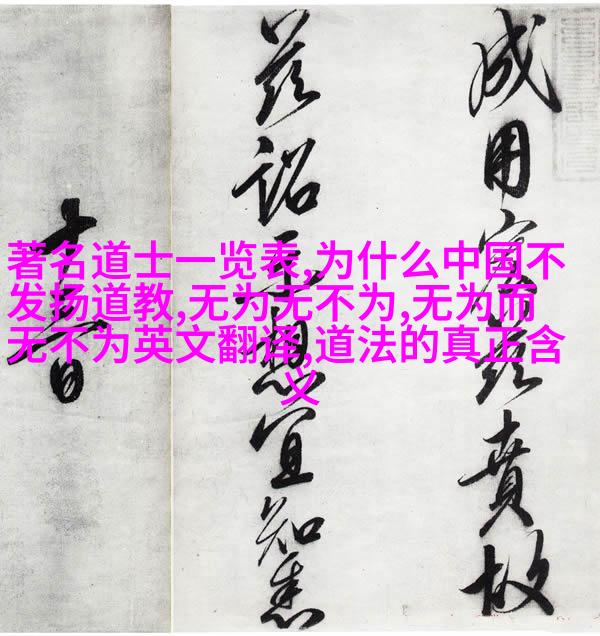 成用宣茲賁故
茲詔示想宜知悉
著名道士一览表,为什么中国不
发扬道教,无为无不为,无为而
无不为英文翻译,道法的真正含
义